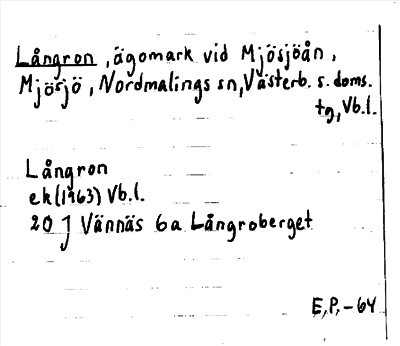 Långron, ägomark vid Mjösjöån,
Mjösjö, Nordmalings sn, Västerb. s. doms.
tg, Vb.l.
Långron
ek (1963) Vb.l.
20 J Vännäs 6a Långroberget
E.P.-64